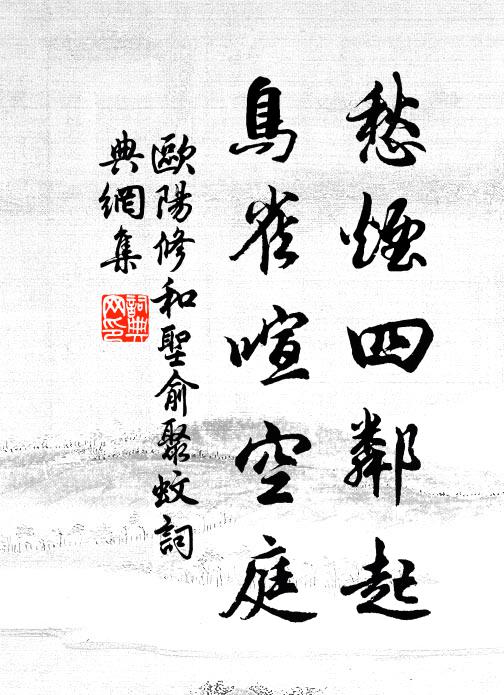 愁煙四鄰起
鳥雀喧空庭
歐陽修和聖俞聚蚊詞
典網集
詞典網印